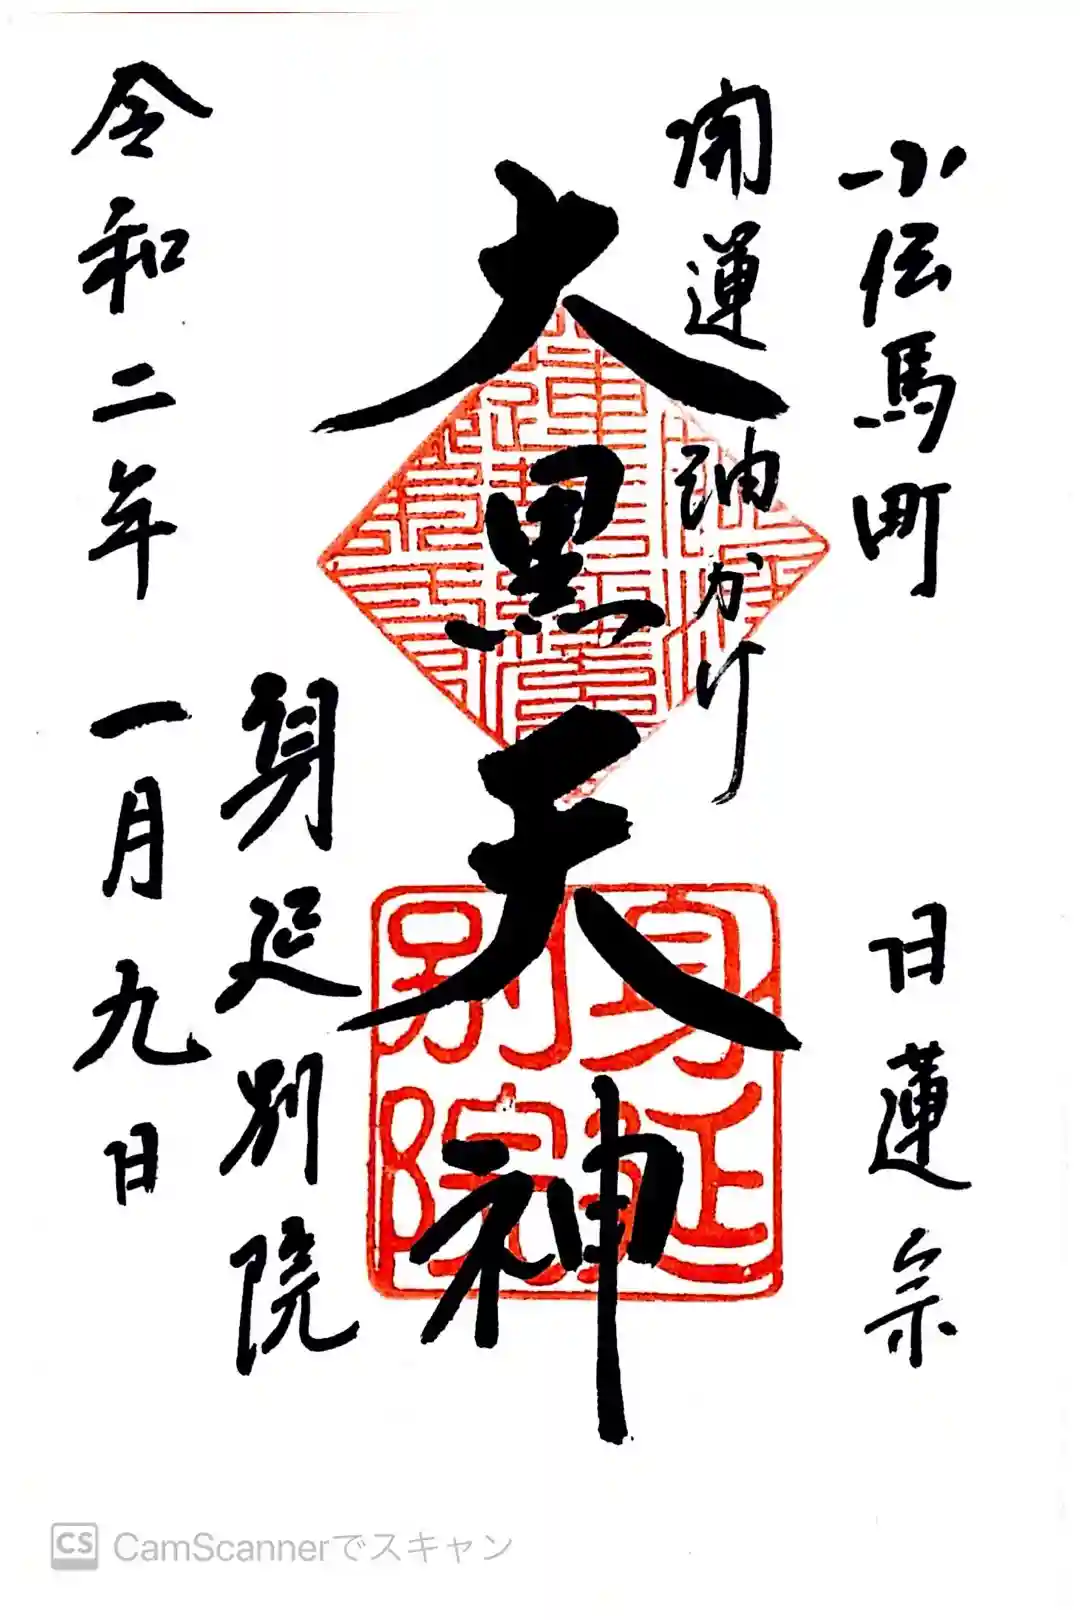 小伝馬町 日蓮宗
開運油かけ
大黒天神
身延別院
身延別院
令和二年 一月九日
CS CamScannerでスキャン